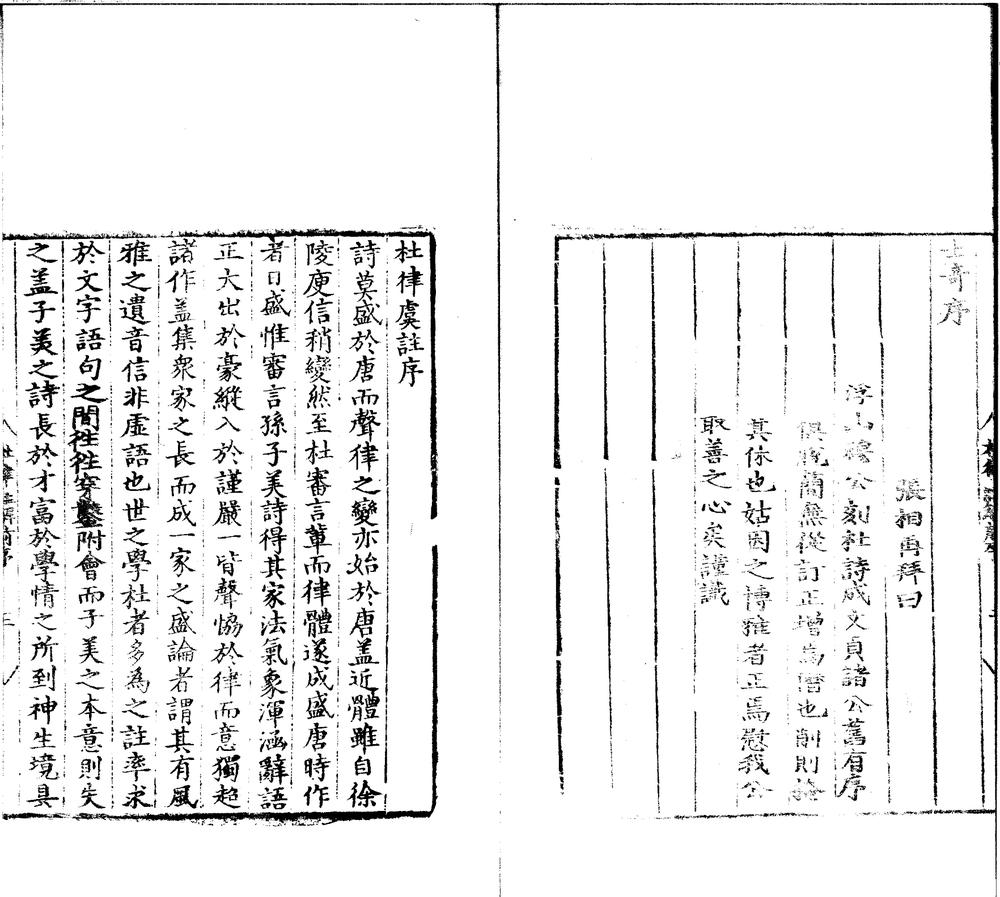 士奇序
張相再拜曰
浮山穆公刻杜詩成文貞諸公舊有序
俱脫簡無從訂正增為僭也削則掩
其休也姑因之博雅者正焉慰我公
取善之心矣謹識
杜律虞註序
詩莫盛於唐而聲律之變亦始於唐盖近體雖自徐
陵庾信稍變然至杜審言輩而律體遂成盛唐時作
者日盛惟審言孫子美詩得其家法氣象渾涵辭語
正大出於豪縱入於謹嚴一皆聲恊於律而意獨超
諸作盖集衆家之長而成一家之盛論者謂其有風
雅之遺音信非虛語也世之學杜者多為之註率求
於文字語句之間徃徃穿鑿附會而子美之本意則失
之盖子美之詩長於才富於學情之所到神生境具
杜律註解前序
三